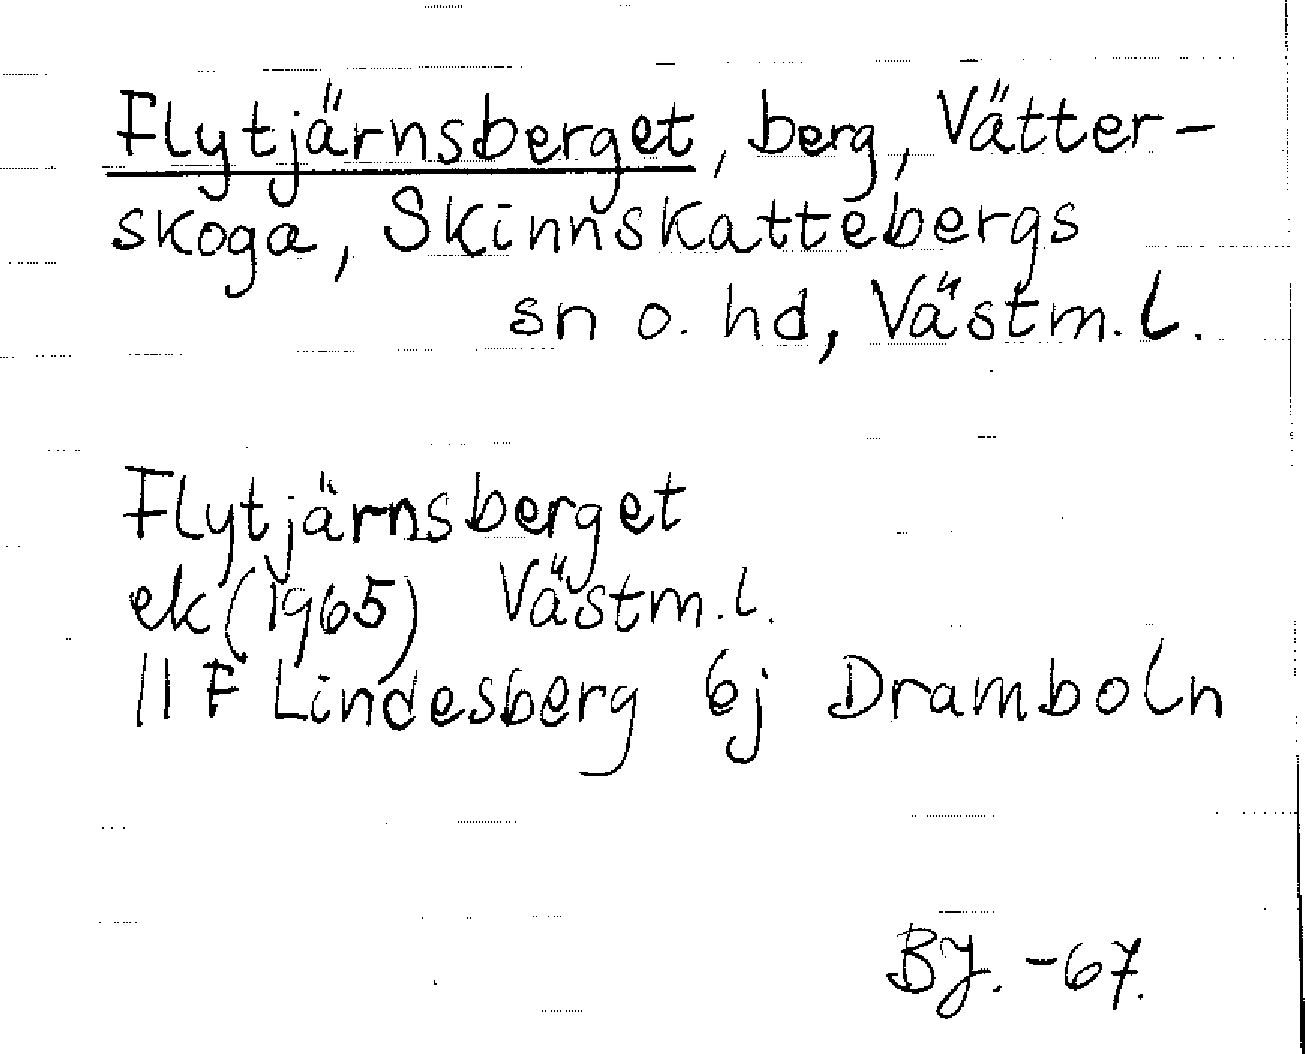 Flytjärnsberget, berg, Vätter-
skoga, Skinnskattebergs
sn o. hd, Västm. l.
Flytjärnsberget
ek (1965) Västm. l.
11 F Lindesberg 6j Dramboln
BJ. -67.